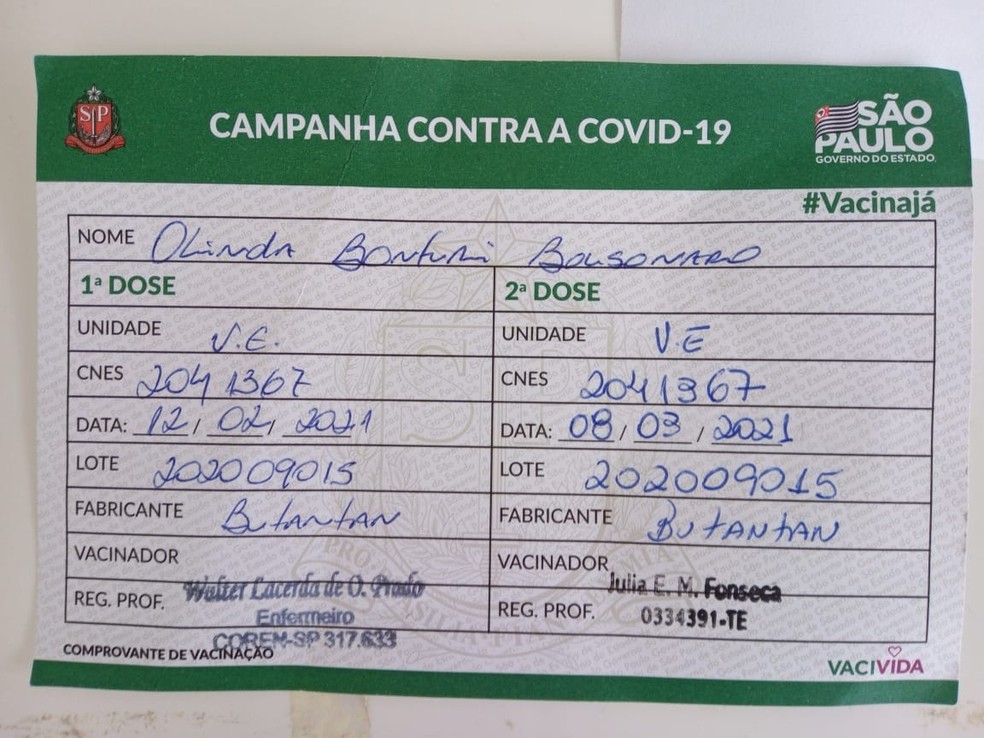 SP
CAMPANHA CONTRA A COVID-19
SÃO
PAULO
GOVERNO DO ESTADO
#Vacinajá
NOME Olinda Bonturi Bolsonaro
1ª DOSE
2ª DOSE
UNIDADE V.E.
UNIDADE V.E
CNES 2041367
CNES 2041367
DATA: 12/02/2021
DATA: 08/03/2021
LOTE 202009015
LOTE 202009015
FABRICANTE Butantan
FABRICANTE Butantan
VACINADOR
VACINADOR
Walter Lacerda de O. Prado
Julia E. M. Fonseca
REG. PROF.
Enfermeiro
REG. PROF. 0334391-TE
COREN-SP 317.633
COMPROVANTE DE VACINAÇÃO
VACIVIDA